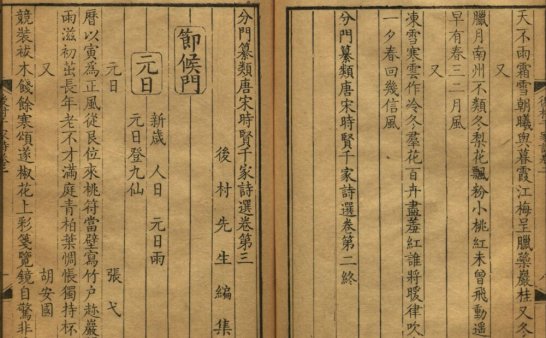 天不雨霜雪朝曦與暮霞江梅呈臘藥巖桂又冬
又
臘月南州不類冬梨花飄粉小桃紅未曾飛動遥
早有春三二月風
又
凍雪寒雲作冷冬羣花百卉盡羞紅誰將暖律吹
一夕春回幾信風
分門纂類唐宋時賢千家詩選卷第二終
分門纂類唐宋時賢千家詩選卷第三
後村先生編集
節候門
元日
新歲 人日 元日雨
元日登九仙
元日 張弋
曆以寅為正風從艮位來桃符當壁寫竹戶趂巖
雨滋初茁長年老不才滿庭青柏葉惆悵獨持杯
又 胡安國
競裝袚木餞餘寒頌遂椒花上彩箋覽鏡自驚非